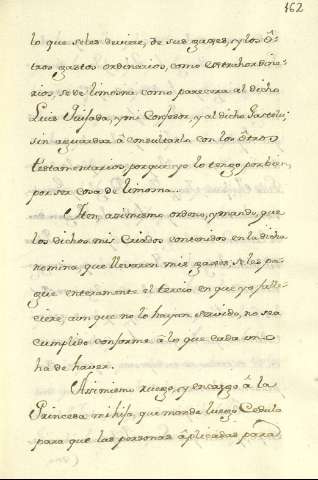 162
lo que se les deviere, de sus gaxes, y los ô-
tros gastos ordinarios, como extrahordina-
rios, se dè limosna como parecera al dicho
Luis Quijada, y mi Confesor, y al dicho Gastelu;
sin aguardar â consultarlo con los ôtros
testamentarios, porque yo lo tengo por bien,
por ser cosa de limosna.
Iten, asimismo ordeno, y mando, que
los dichos mis Criados contenidos en la dicha
nomina, que llevaren mis gaxes, se les pa-
gue enteramente el tercio en que yo falle-
ciere, aun que no lo hayan servido, no sea
cumplido conforme â lo que cada uno
ha de haver.
Asimismo ruego, y encargo â la
Princesa mi hija, que mande luego Cedula
para que las personas âplicadas para